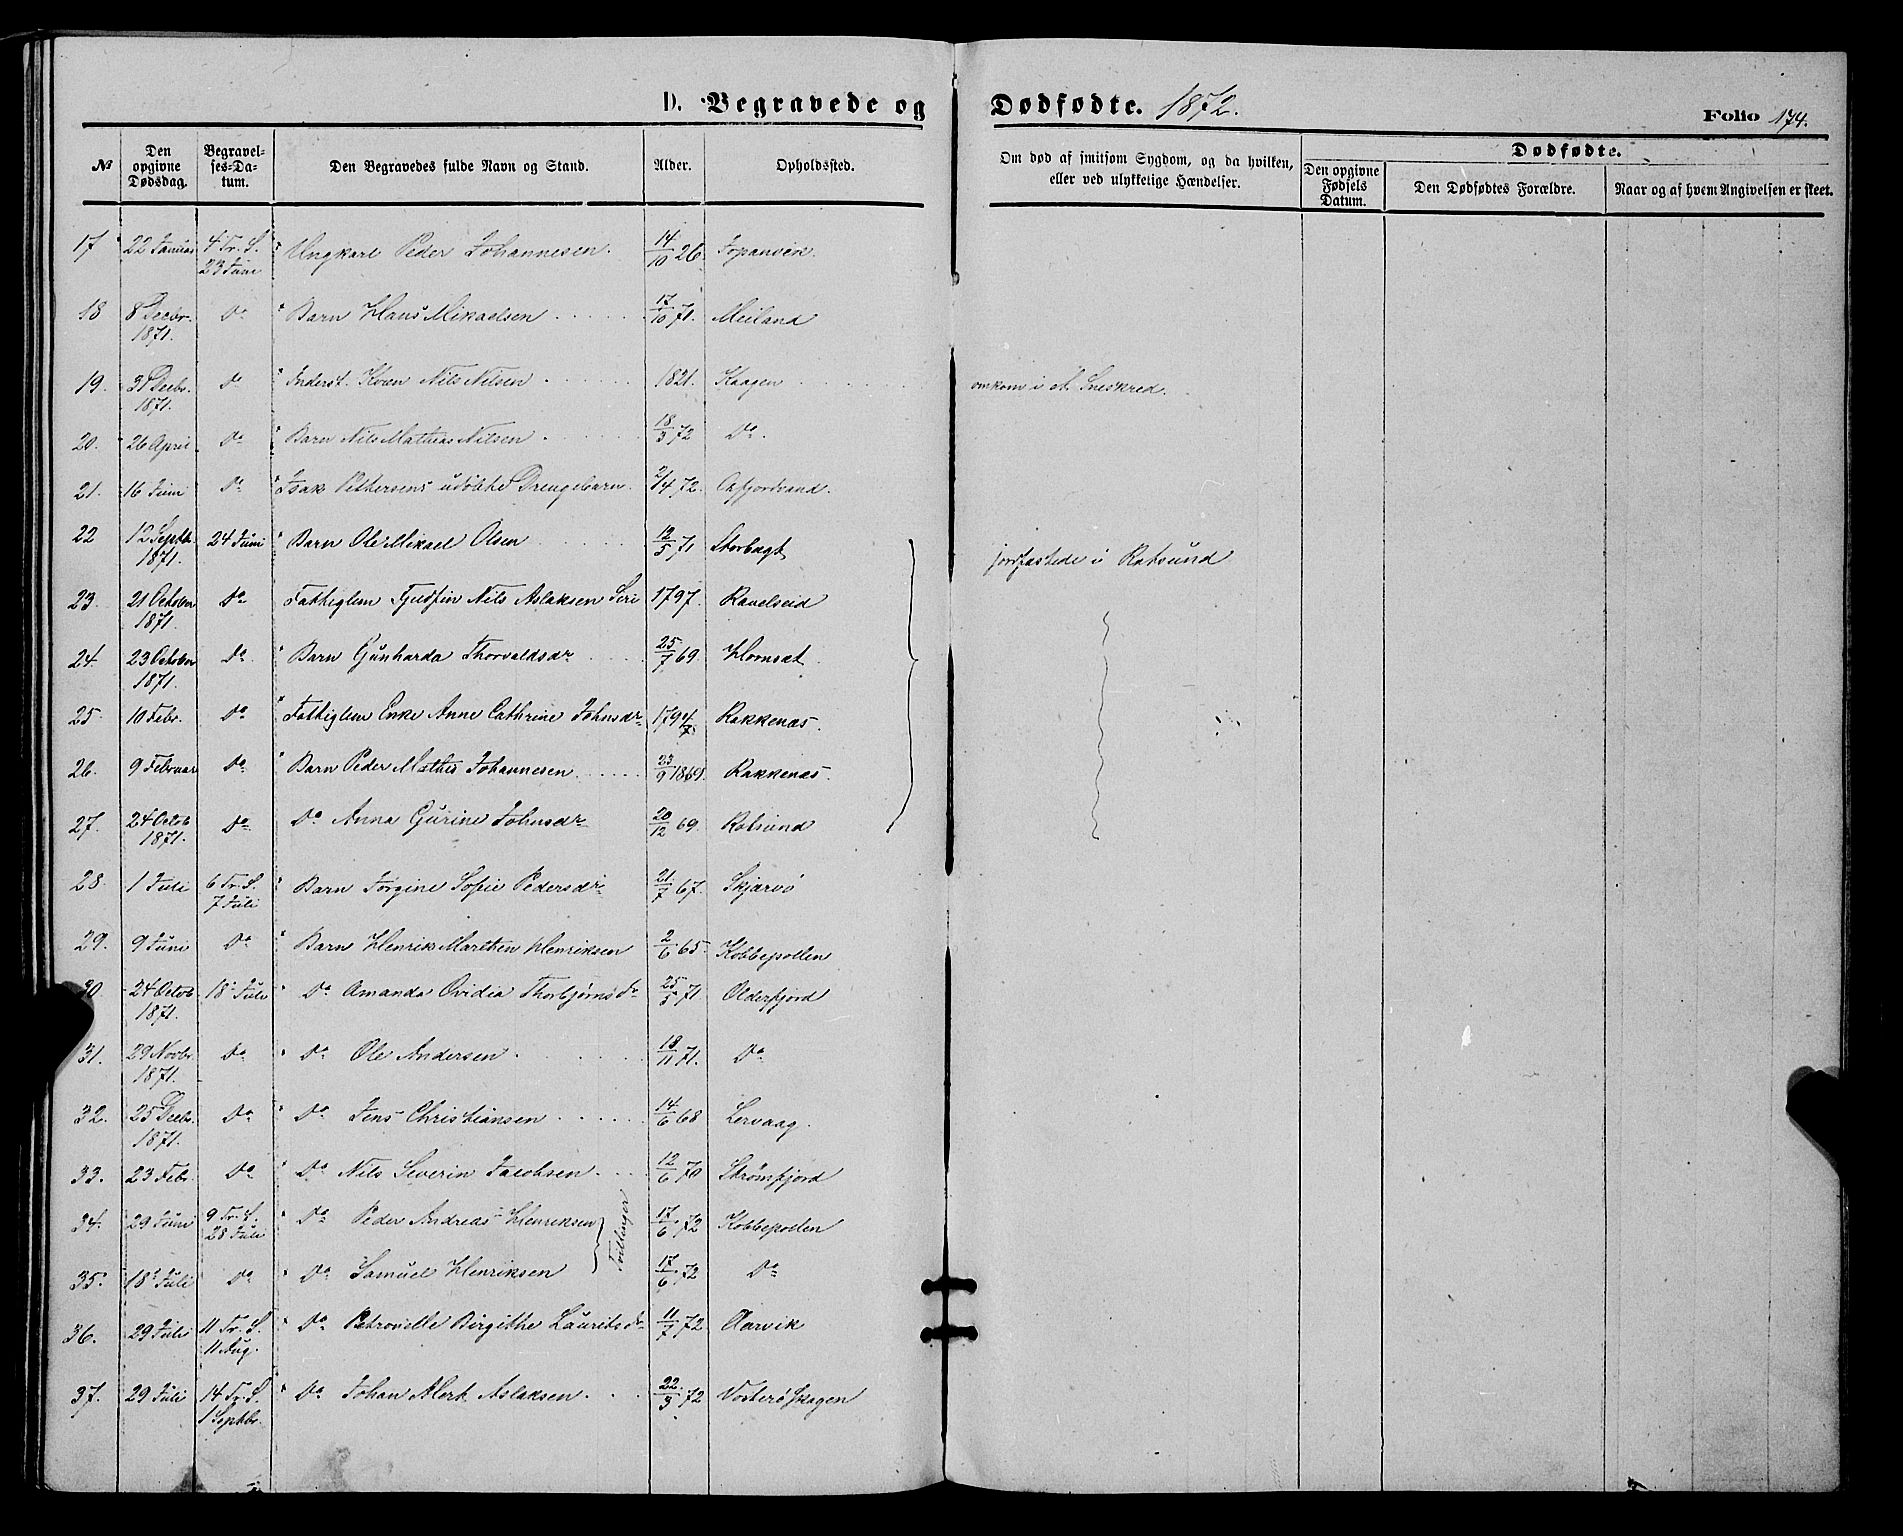 D. Begravede og Dødfødte. 1872. Folio 174.
№ Den opgivne Dødsdag. Begravelses-Datum. Den Begravedes fulde Navn og Stand. Alder. Opholdssted. Om død af smitsom Sygdom, og da hvilken, eller ved ulykkelige Hændelser. Dødfødte. Den opgivne Fødsels Datum. Den Dødfødtes Forældre. Naar og af hvem Angivelsen er skeet.
17 22 Januar 4 Tr. S. 23 Juni Ungkarl Peder Johannesen. 14/10 26.
18 8 Decbr. 1871. Do Barn Hans Mikaelsen 17/10 71. Meiland
19. 31 Decbr. 1871. Do Inderst. Kvæn Nils Nilsen 1821. Kaagen omkom i et Sneskred.
20. 26 April Do Barn Nils Mathias Nilsen 18/3 72 Do.
21. 16 Juni Do Isak Pettersens udøbte Drengebarn. 2/4 72.
22 12 Septb. 1871. 24 Juni Barn Ole Mikael Olsen 12/5 71 Storbugt jordfæstede i Rotsund
23. 21 October 1871. Do Fattiglem Nils Aslaksen Siri 1797. Ravelseid
24. 23 October 1871. Do Barn Gunharda Thorvaldsdr 25/7 69.
25. 10 Febr. Do Fattiglem Enke Anne Cathrine Johnsdr Rakkenæs.
26. 9 Februar Do Barn Peder Mathis Johannesen 23/9 1869. Rakkenæs.
27. 24 Octob 1871. Do Do Anna Gurine Johnsdr 20/12 69. Rotsund
28. 1 Juli 6 Tr. S. 7 Juli Barn Jørgine Sofie Pedersdr 21/7 67. Skjærvø
29. 9 Juni Do Barn Henrik Marthen Henriksen 2/6 65. Kobbepollen
30. 24 Octob 1871. 18 Juli Do Amanda Ovidia Thorbjørnsdr 25/5 71 Olderfjord
31. 29 Novbr. 1871. Do Do Ole Andersen 18/11 71. Do
32. 25 Decbr. 1871. Do Do Jens Christiansen 14/6 68 Lervaag.
33. 23 Febr. Do Do Nils Severin Jacobsen 12/6 70 Strømfjord
34. 29 Juni 9 Tr. S. 28 Juli Do Peder Andreas Henriksen Tvillinger 17/6 72 Kobbepollen
35. 18 Juli Do Do Samuel Henriksen 17/6 72 Do
36. 29 Juli 11 Tr. S. 11 Aug. Do Petronelle Birgithe Lauritsdr 11/7 72 Aarvik
37. 29 Juli 14 Tr. S. 1 Septbr. Do Johan Alert Aslaksen 22/3 72 Vorterøskagen